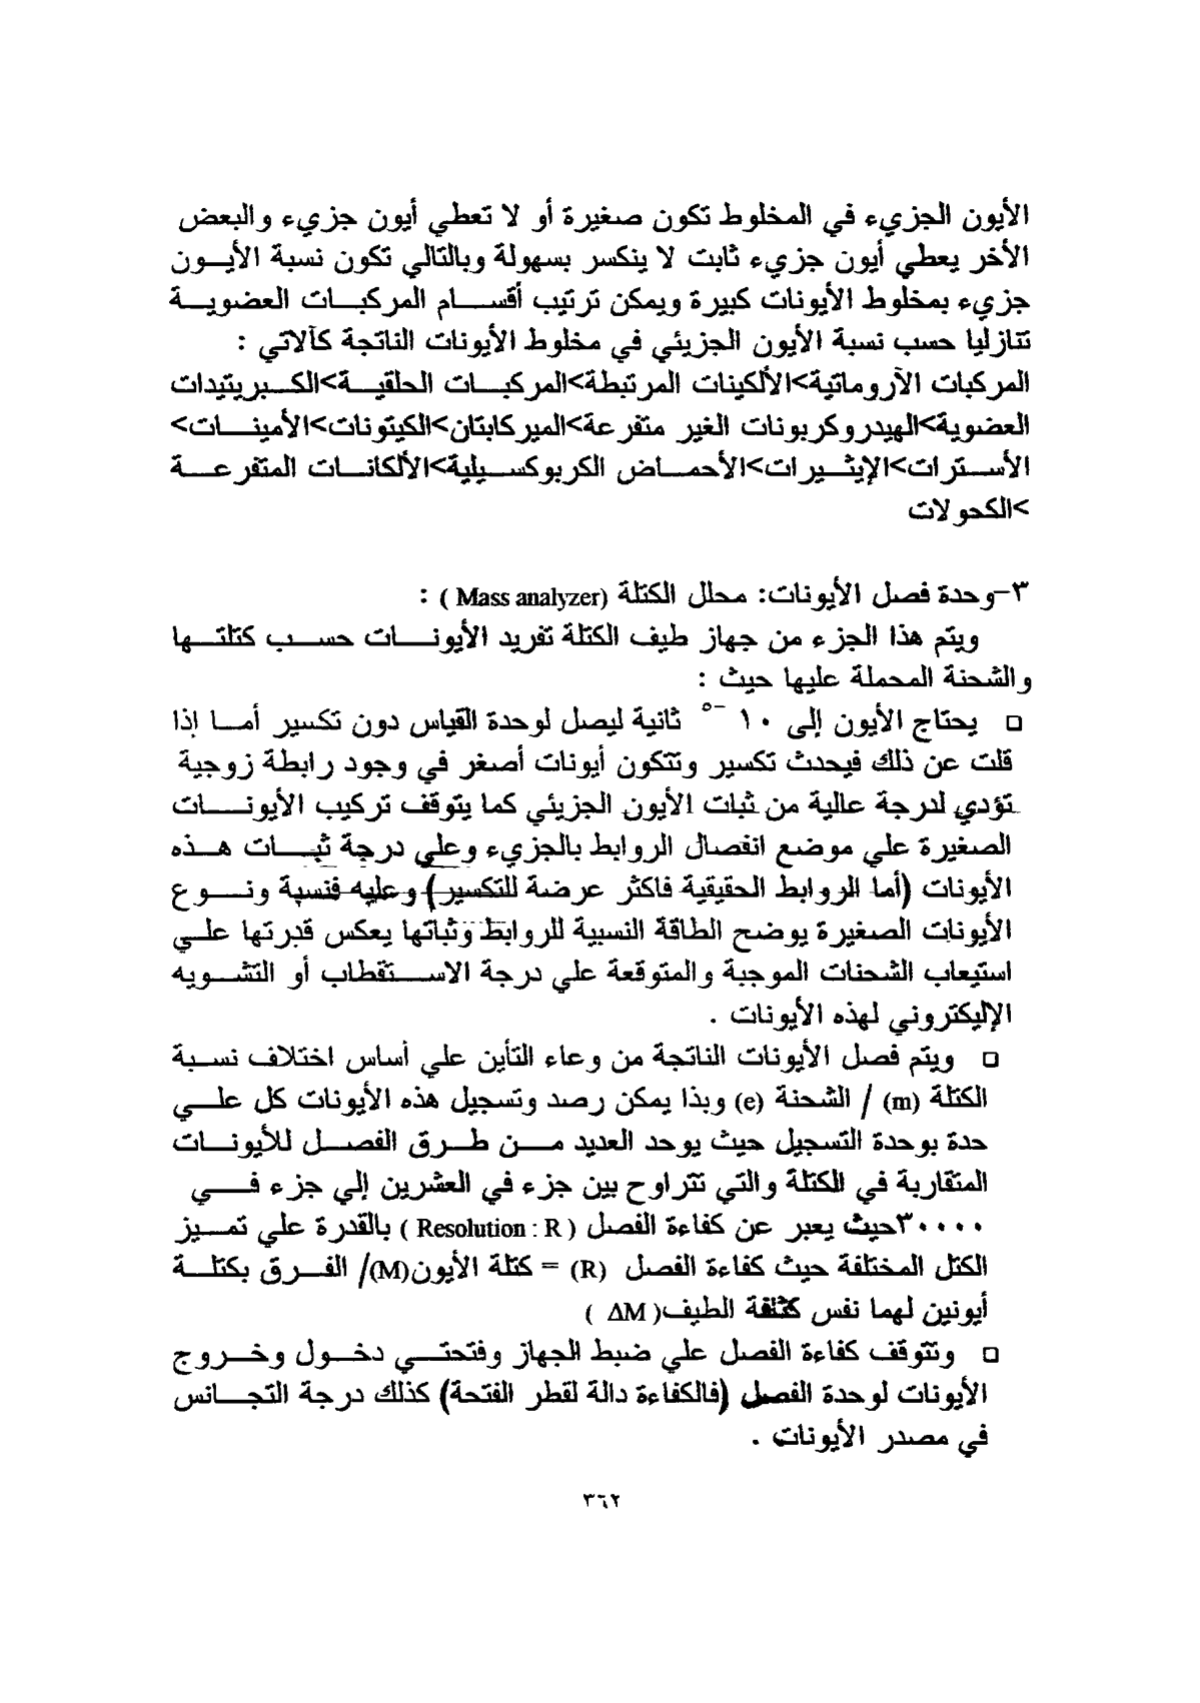 الأيون الجزيء في المخلوط تكون صغيرة أو لا تعطي أيون جزيء والبعض
الأخر يعطي أيون جزيء ثابت لا ينكسر بسهولة وبالتالي تكون نسبة الأيـون
جزيء بمخلوط الأيونات كبيرة ويمكن ترتيب أقســام المركبـات العضويـة
تنازليا حسب نسبة الأيون الجزيئي في مخلوط الأيونات الناتجة كآلاتي :
المركبات الآروماتية>الألكينات المرتبطة>المركبـات الحلقيـة>الكـبريتيدات
العضوية>الهيدروكربونات الغير متفرعة>الميركابتان>الكيتونات>الأمينـات>
الأسـترات>الإيثـيرات>الأحمـاض الكربوكسـيلية>الألكانـات المتفرعـة
>الكحولات
٣-وحدة فصل الأيونات: محلل الكتلة (Mass analyzer ) :
ويتم هذا الجزء من جهاز طيف الكتلة تفريد الأيونـات حسـب كتلتـها
والشحنة المحملة عليها حيث :
□ يحتاج الأيون إلى ١٠ -٥ ثانية ليصل لوحدة القياس دون تكسير أمـا إذا
قلت عن ذلك فيحدث تكسير وتتكون أيونات أصغر في وجود رابطة زوجية
تؤدي لدرجة عالية من ثبات الأيون الجزيئي كما يتوقف تركيب الأيونـات
الصغيرة علي موضع انفصال الروابط بالجزيء وعلي درجة ثبـات هـذه
الأيونات (أما الروابط الحقيقية فاكثر عرضة للتكسير) وعليه فنسبة ونـوع
الأيونات الصغيرة يوضح الطاقة النسبية للروابط وثباتها يعكس قدرتها علـي
استيعاب الشحنات الموجبة والمتوقعة علي درجة الاسـتقطاب أو التشـويه
الإليكتروني لهذه الأيونات .
□ ويتم فصل الأيونات الناتجة من وعاء التأين علي أساس اختلاف نسـبة
الكتلة (m) / الشحنة (e) وبذا يمكن رصد وتسجيل هذه الأيونات كل علـي
حدة بوحدة التسجيل حيث يوحد العديد مـن طـرق الفصـل للأيونـات
المتقاربة في الكتلة والتي تتراوح بين جزء في العشرين إلي جزء فـي
٣٠٠٠٠حيث يعبر عن كفاءة الفصل ( Resolution : R ) بالقدرة علي تمـيز
الكتل المختلفة حيث كفاءة الفصل (R) = كتلة الأيون(M)/ الفـرق بكتلـة
أيونين لهما نفس كثافة الطيف( ΔM )
□ وتتوقف كفاءة الفصل علي ضبط الجهاز وفتحتـي دخـول وخـروج
الأيونات لوحدة الفصل (فالكفاءة دالة لقطر الفتحة) كذلك درجة التجـانس
في مصدر الأيونات .
٣٦٢